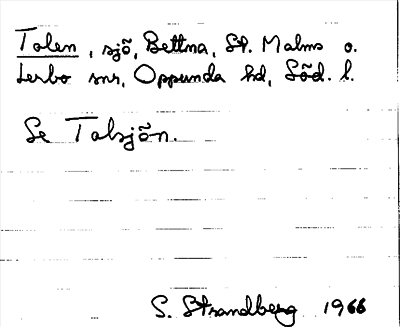 Tolen, sjö, Bettna, St. Malms o.
Lerbo snr, Oppunda hd, Söd. l.
Se Tolsjön.
S. Strandberg 1966